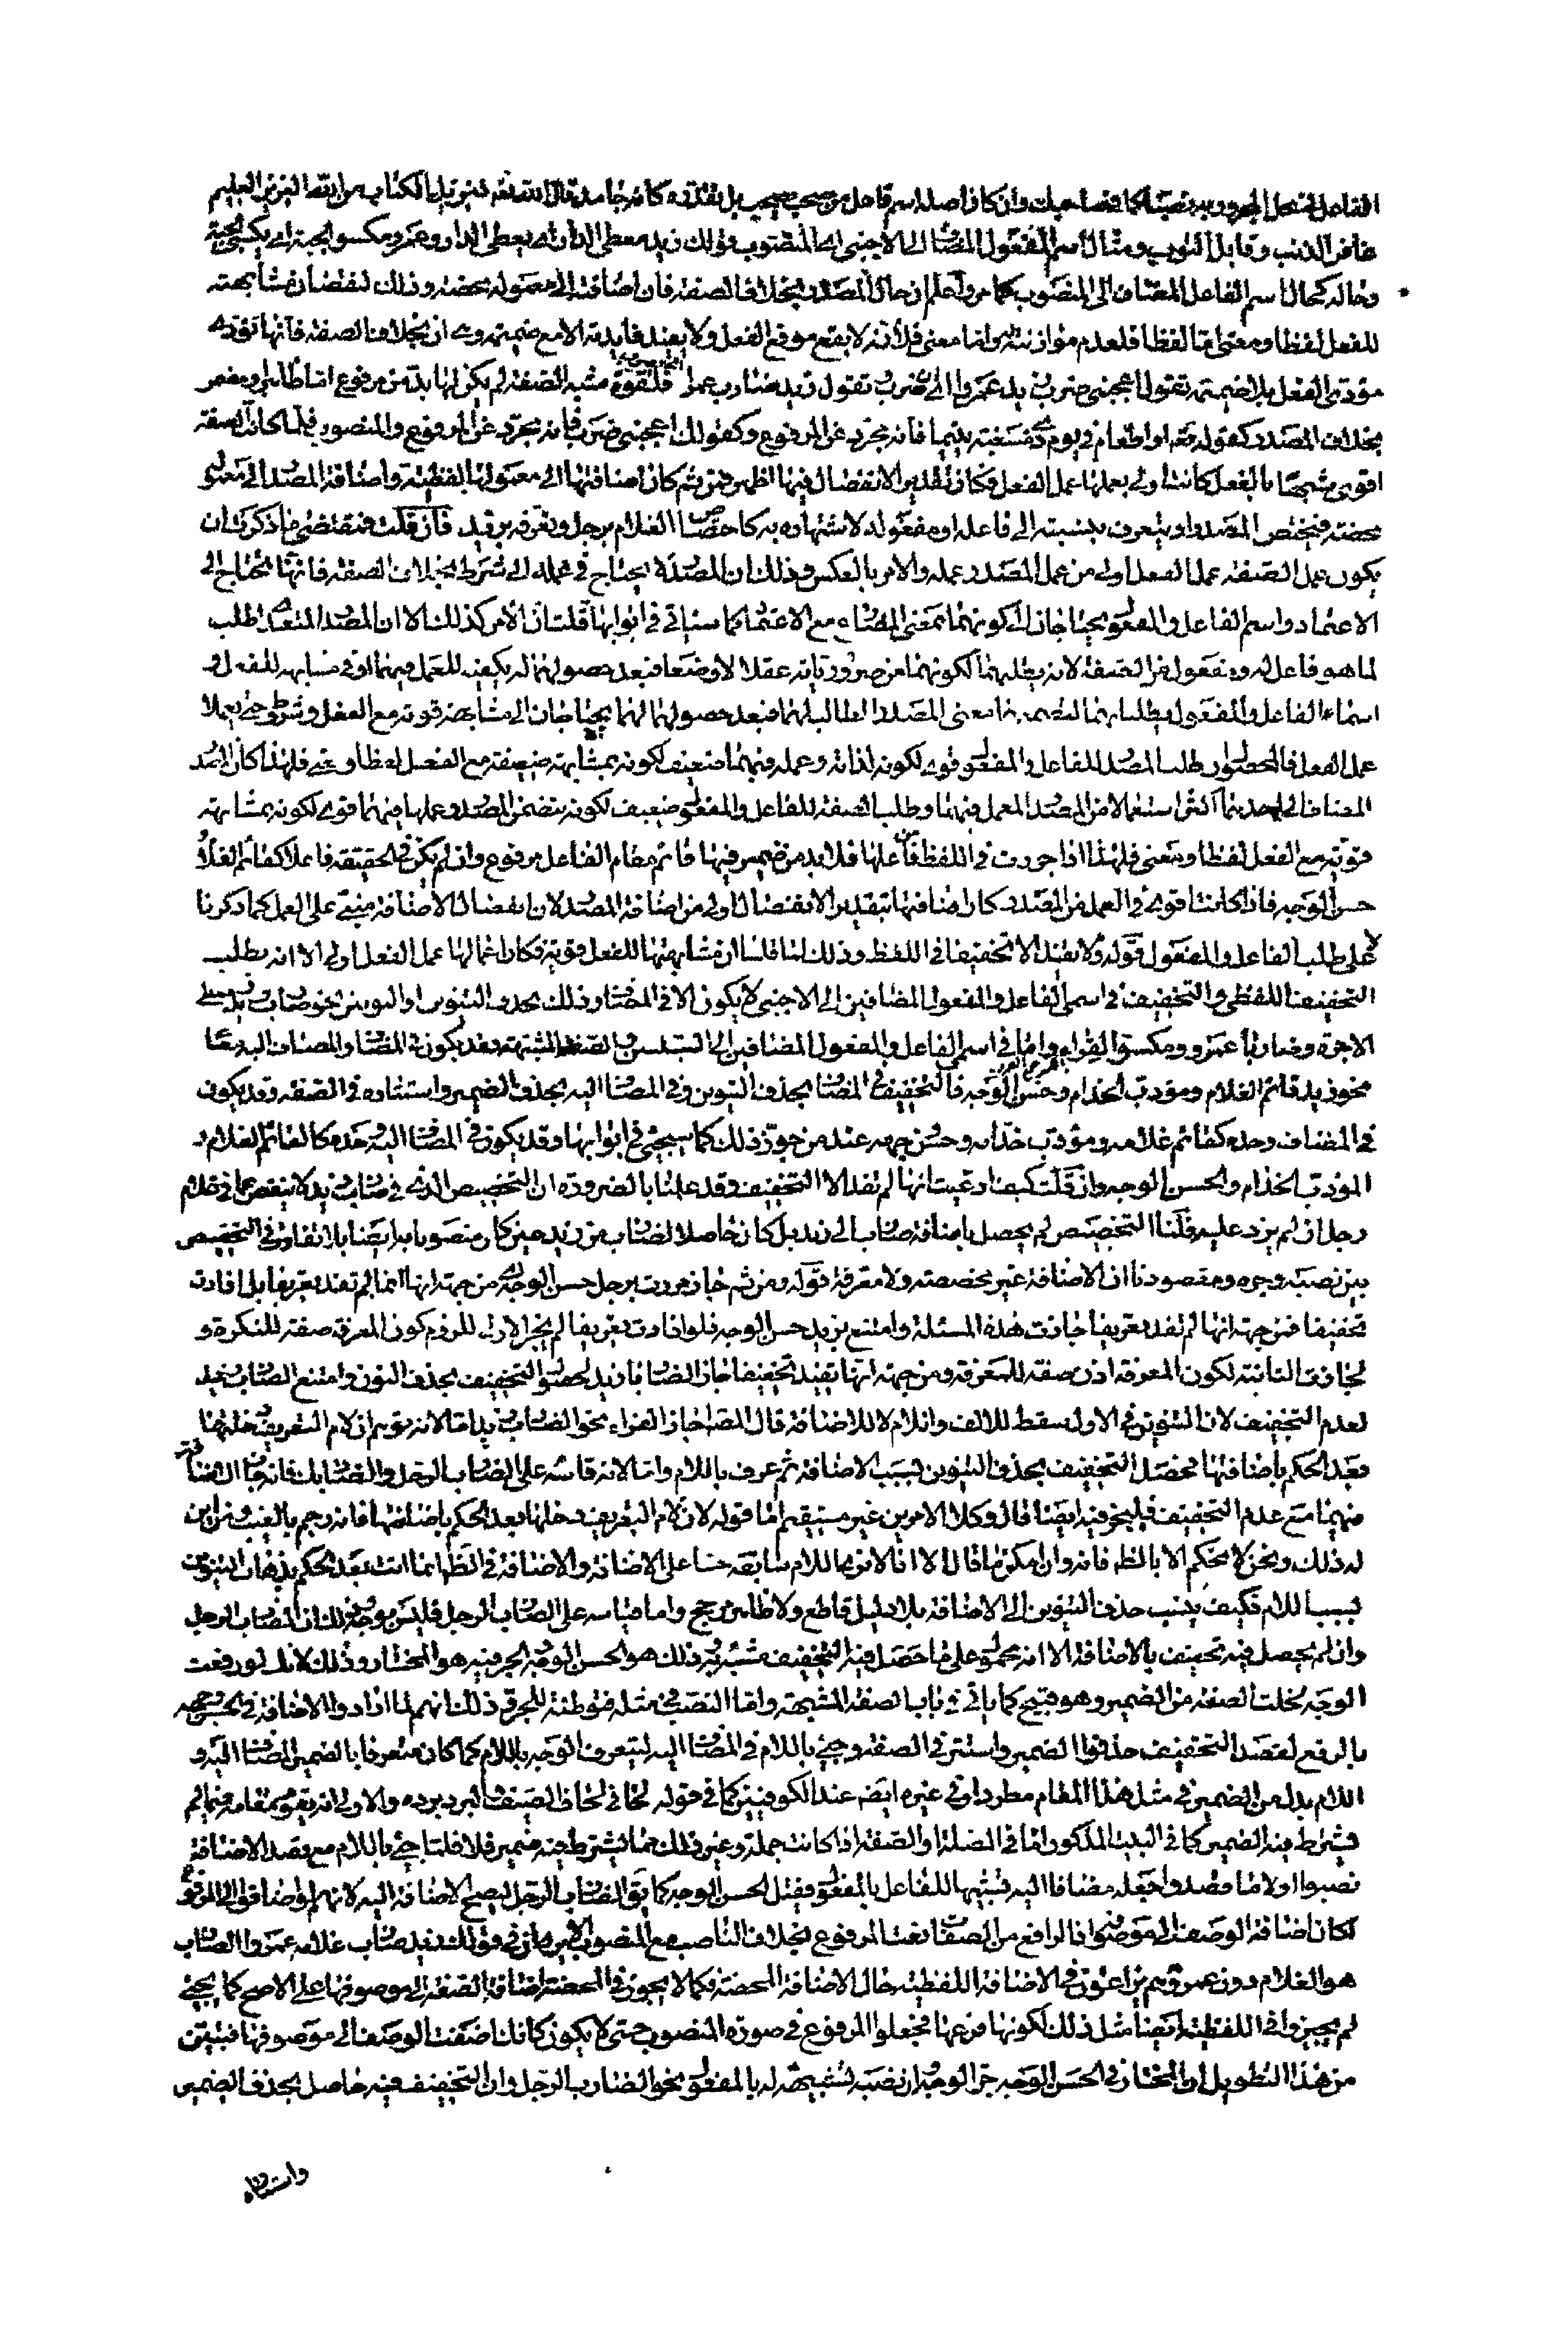 الفاعل المستعمل المجرور بعد نصبنا كما قصا عيك وان كان اصله اسم فاعل من صحب يصحب بل نقدره كانه جامد قال الله تعالى تنزيل الكتاب من الله العزيز العليم
غافر الذنب وقابل التوب ومثال اسم المفعول المضاف الى الاجنبى اى المنصوب قولك زيد معطى الدار اى يعطى الدار وعمرو مكسو الجبة اى يكسى الجبة
وحاله كحال اسم الفاعل المضاف الى المنصوب كما مر واعلم ان حال المصدر بخلاف الصفة فان اضافته الى معموله محضة وذلك لنقصان مشابهته
للفعل لفظا ومعنى اما لفظا فلعدم موازنته واما معنى فلانه لا يقع موقع الفعل ولا يفيد فايدته الا مع ضميمة وهى ان بخلاف الصفة فانها تؤدى
مؤدى الفعل بلا ضميمة تقول اعجبنى ضرب زيد عمروا اى ان ضرب تقول زيد ضارب عمرا فلقوة شبه الصفة لم يكن لها بد من مرفوع اما ظاهر او مضمر
بخلاف المصدر كقوله تعه او اطعام فى يوم ذى مسغبة يتيما فانه مجرد عن المرفوع وكقولك اعجبنى ضرب فانه مجرد عن المرفوع والمنصوب فلما كانت الصفة
اقوى شبها بالفعل كانت اولى بعملها عمل الفعل فكان تقدير الانفصال فيها اظهر فمن ثم كان اضافتها الى معمولها لفظية واضافة المصدر الى معموله
محضة فيختص المصدر او يتعرف بنسبته الى فاعله او مفعوله لاشتهاده به كاختصاص الغلام برجل وتعرفه بزيد فان قلت فمقتضى ما ذكرت ان
يكون عمل الصفة عمل الفعل اولى من عمل المصدر عمله والامر بالعكس وذلك ان المصدر لا يحتاج فى عمله الى شرط بخلاف الصفة فانها تحتاج الى
الاعتماد واسم الفاعل والمفعول يحتاجان الى كونهما بمعنى المضارع مع الاعتماد كما سياتى فى ابوابها قلت ان الامر كذلك الا ان المصدر المتعدى اطلب
لما هو فاعل له ومفعول من الصفة لانه يطلبهما لكونهما من ضرورياته عقلا لا وضعا فبعد حصولهما له يكفيه للعمل فيهما ادنى مشابهه للفعل و
اسماء الفاعل والمفعول يطلبانهما لتضمنهما معنى المصدر الطالب لهما فبعد حصولهما لهما يحتاجان الى مشابهة قوية مع الفعل وشروط حتى يعملا
عمل الفعل فالحصول طلب المصدر للفاعل والمفعول قوى لكونه لذاته وعمله فيهما ضعيف لكونه بمشابهة ضعيفة مع الفعل لفظا ومعنى فلهذا كان المصدر
المضاف الى احدهما اكثر استعمالا من المصدر المعمل فيهما وطلب الصفة للفاعل والمفعول ضعيف لكونه بتضمن المصدر وعملها فيهما قوى لكونه بمشابهة
قوية مع الفعل لفظا ومعنى فلهذا اذا جردت فى اللفظ عن فاعلها فلا بد من ضمير فيها قائم مقام الفاعل مرفوع وان لم يكن فى الحقيقة فاعلا كقائم الغلام
حسن الوجه فاذا كانت اقوى فى العمل من المصدر كان اضافتها بتقدير الانفصال اولى من اضافة المصدر لان انفصال الاضافة مبنى على العمل كما ذكرنا
لا على طلب الفاعل والمفعول قوله ولا يفيد الا تخفيفا فى اللفظ وذلك لما قلنا ان مشابهتها للفعل قوية فكان اعمالها عمل الفعل اولى الا انه يطلب
التخفيف اللفظى والتخفيف فى اسمى الفاعل والمفعول المضافين الى الاجنبى لا يكون الا فى المضاف وذلك بحذف التنوين او النونين نحو ضارب زيد ومعطى
الاجرة وضاربا عمرو ومكسوا الفراء واما فى اسم الفاعل والمفعول المضافين الى السببى وفى الصفة المشبهة فقد يكون فى المضاف والمضاف اليه معا
نحو زيد قائم الغلام ومؤدب الخدام وحسن الوجه فالتخفيف فى المضاف بحذف التنوين وفى المضاف اليه بحذف الضمير واستتاره فى الصفة وقد يكون
فى المضاف وحده كقائم غلامه ومؤدب خدامه وحسن وجهه عند من جوز ذلك كما سيجئ فى ابوابها وقد يكون فى المضاف اليه وحده كالقائم الغلام و
المؤدب الخدام والحسن الوجه وان قلت كيف ادعيت انها لم تفد الا التخفيف وقد علمنا بالضرورة ان التخصيص الذى فى ضارب زيد لا ينقص عما فى غلام
رجل ان لم يزد عليه قلنا التخصيص لم يحصل باضافة ضارب الى زيد بل كان حاصلا لضارب من زيد حين كان منصوبا به ايضا بلا تفاوت فى التخصيص
بين نصبه وجره ومقصودنا ان الاضافة غير مخصصة ولا معرفة قوله ومن ثم جاز مررت برجل حسن الوجه اى من جهة انها انما لم تفد تعريفا بل افادت
تخفيفا فمن جهة انها لم تفد تعريفا جازت هذه المسئلة وامتنع بزيد حسن الوجه فلو افادت تعريفا لم يجز الاولى للزوم كون المعرفة صفة للنكرة و
لجازت الثانية لكون المعرفة اذن صفة للمعرفة ومن جهة انها تفيد تخفيفا جاز الضاربا زيد لحصول التخفيف بحذف النون وامتنع الضارب زيد
لعدم التخفيف لان التنوين فى الاول سقط للالف واللام لا للاضافة قال المصـ اجاز الفراء نحو الضارب زيد اما لانه توهم ان لام التعريف دخلتها
بعد الحكم باضافتها فحصل التخفيف بحذف التنوين بسبب الاضافة ثم عرف باللام واما لانه قاسه على الضارب الرجل والضاربك فانه جاز الاضافة
فيهما مع عدم التخفيف فليجز فيه ايضا قال وكلا الامرين غير مستقيم اما قوله لان لام التعريف دخلتها بعد الحكم باضافتها فانه رجم بالغيب ومن اين
له ذلك ونحن لا نحكم الا بالظاهر فانه وان امكن ما قال الا انا لا نرى اللام سابقة حسا على الاضافة والاضافة فى الظاهر انما اتت بعد الحكم بذهاب التنوين
بسبب اللام فكيف ينسب حذف التنوين الى الاضافة بلا دليل قاطع ولا ظاهر مرجح واما قياسه على الضارب الرجل فليس بوجه وذلك ان الضارب الرجل
وان لم يحصل فيه تخفيف بالاضافة الا انه محمول على ما حصل فيه التخفيف مشبه به وذلك هو الحسن الوجه والجر فيه هو المختار وذلك لانك لو رفعت
الوجه لخلت الصفة من الضمير وهو قبيح كما ياتى فى باب الصفة المشبهة واما النصب فى مثله فتوطئة للجر وذلك انهم لما ارادوا الاضافة فى الحسن وجهه
بالرفع لقصد التخفيف حذفوا الضمير واستتر فى الصفة وجئ باللام فى المضاف اليه ليتعرف الوجه باللام كما كان متعرفا بالضمير المضاف اليه و
اللام بدل من الضمير فى مثل هذا المقام مطردا وفى غيره ايضه عند الكوفيين كما فى قوله لحافى لحاف الضيف والبرد برده والاولى انه يقوم مقامه فيما لم
يشترط فيه الضمير كما فى البيت المذكور اما فى الصلة او الصفة اذا كانت جملة وغير ذلك مما يشترط فيه ضمير فلا فلما جئ باللام مع قصد الاضافة
نصبوا اولا ما قصدوا جعله مضافا اليه تشبيها للفاعل بالمفعول فقيل الحسن الوجه كما يق الضارب الرجل ليصح الاضافة اليه لانهم لو اضافوا الى المرفوع
لكان اضافة الوصف الى موصوفه اذ الرافع من الصفات نعت المرفوع بخلاف الناصب مع المنصوب الا ترى ان فى قولك زيد ضارب غلامه عمروا الضارب
هو الغلام دون عمرو فهم يراعون فى الاضافة اللفظية حال الاضافة المحضة فكما لا يجوز فى المحضة اضافة الصفة الى موصوفها على الاصح كما يجئ
لم يجيزوا فى اللفظية ايضا مثل ذلك لكونها فرعها فجعلوا المرفوع فى صورة المنصوب حتى لا يكون كانك اضفت الوصف الى موصوفها فتبين
من هذا التطويل ان المختار فى الحسن الوجه جر الوجه وان نصبه لتشبيهه له بالمفعول نحو الضارب الرجل وان التخفيف فيه حاصل بحذف الضمير
واستتاره